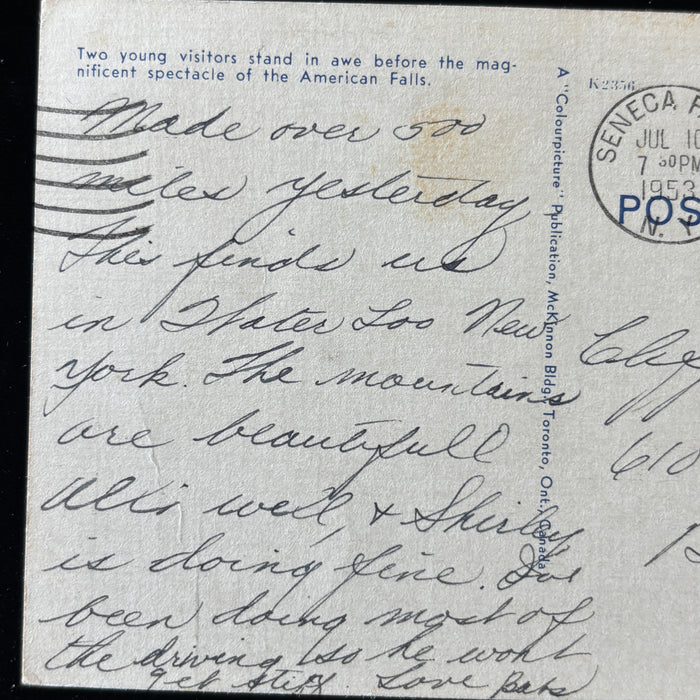 Two young visitors stand in awe before the mag-
nificent spectacle of the American Falls.
Made over 500
miles yesterday
This finds us
in Water Loo New
York. The mountains
are beautifull
All's well, & Shirley
is doing fine. I've
been doing most of
the driving so he won't
get stiff. Love Babs
A "Colourpicture" Publication, McKinnon Bldg., Toronto, Ont., Canada
K2356
SENECA
JUL 10
7 30 PM
1953
N. Y
POS
610